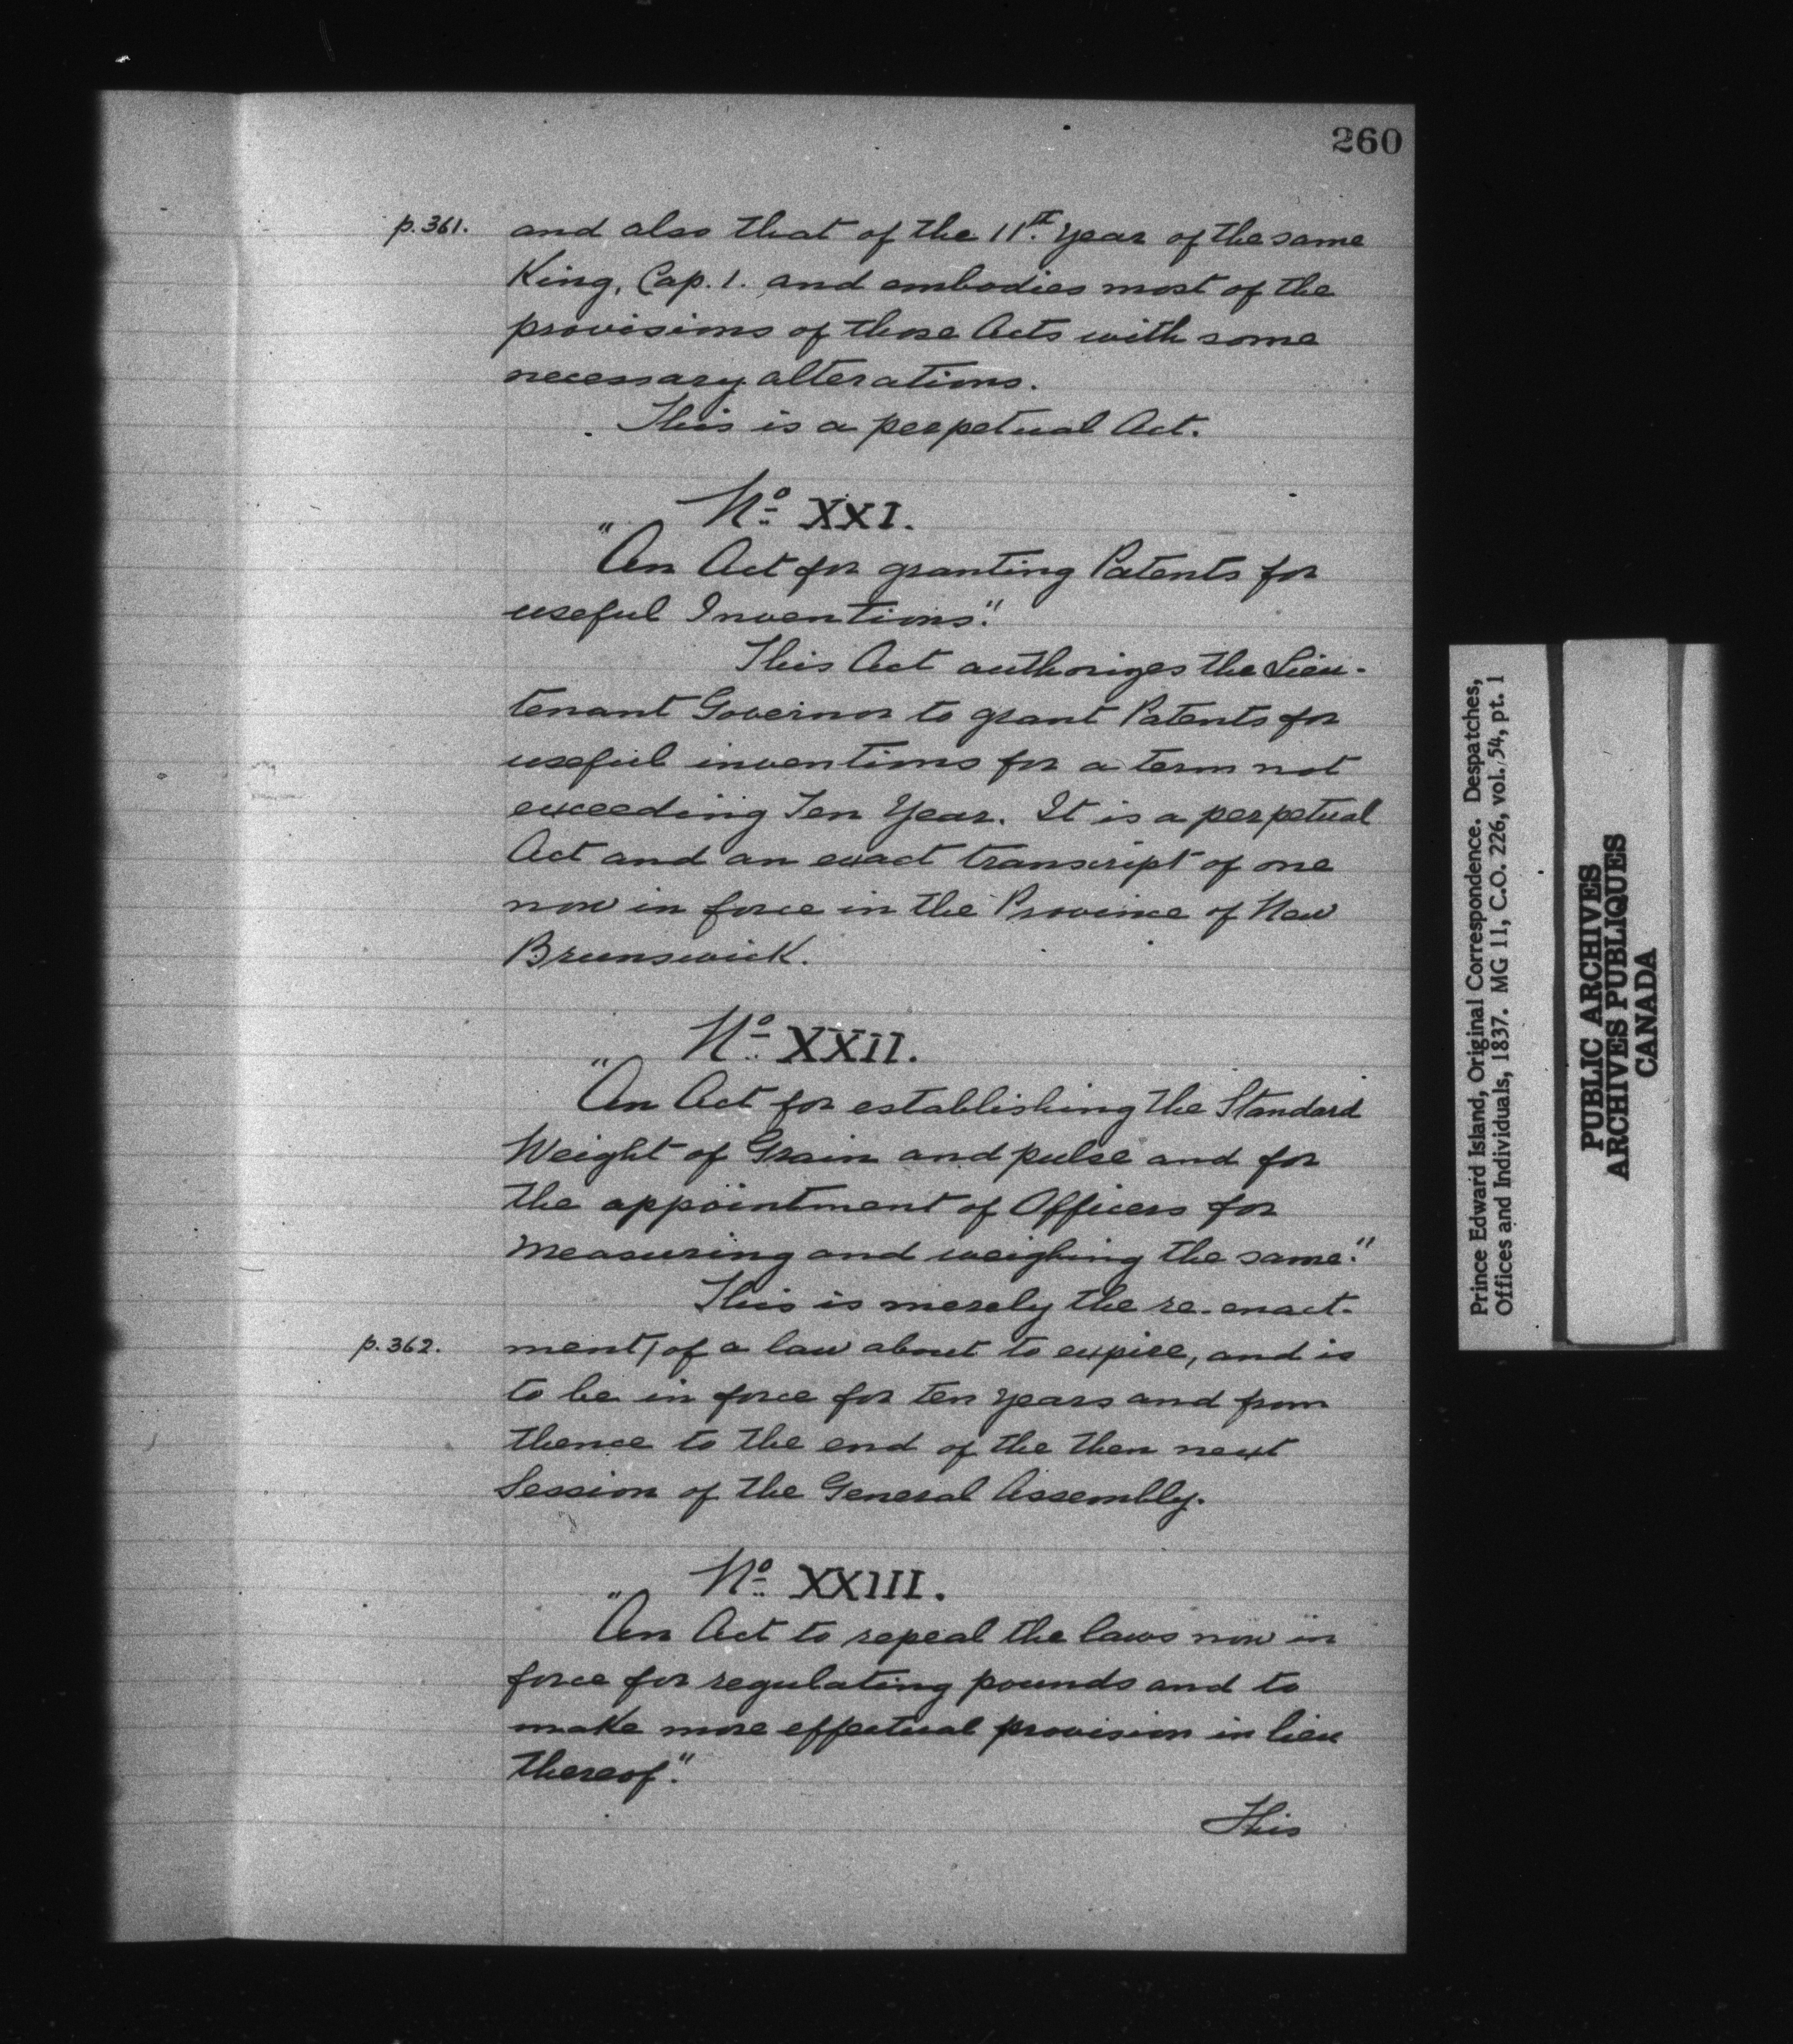 260
p.361. and also that of the 11th. year of the same
King, Cap. 1. and embodies most of the
provisions of those Acts with some
necessary alterations.
This is a perpetual Act.
No. XXI.
"An Act for granting Patents for
useful Inventions."
This Act authorizes the Lieu-
tenant Governor to grant Patents for
useful inventions for a term not
exceeding Ten Year. It is a perpetual
Act and an exact transcript of one
now in force in the Province of New
Brunswick.
No. XXII.
"An Act for establishing the Standard
Weight of Grain and pulse and for
the appointment of Officers for
measuring and weighing the same."
This is merely the re-enact-
p.362. ment/of a law about to expire, and is
to be in force for ten years and from
thence to the end of the then next
Session of the General Assembly.
No. XXIII.
"An Act to repeal the laws now in
force for regulating pounds and to
make more effectual provision in lieu
thereof."
This
Prince Edward Island, Original Correspondence. Despatches,
Offices and Individuals, 1837. MG 11, C.O. 226, vol. 54, pt. 1
PUBLIC ARCHIVES
ARCHIVES PUBLIQUES
CANADA